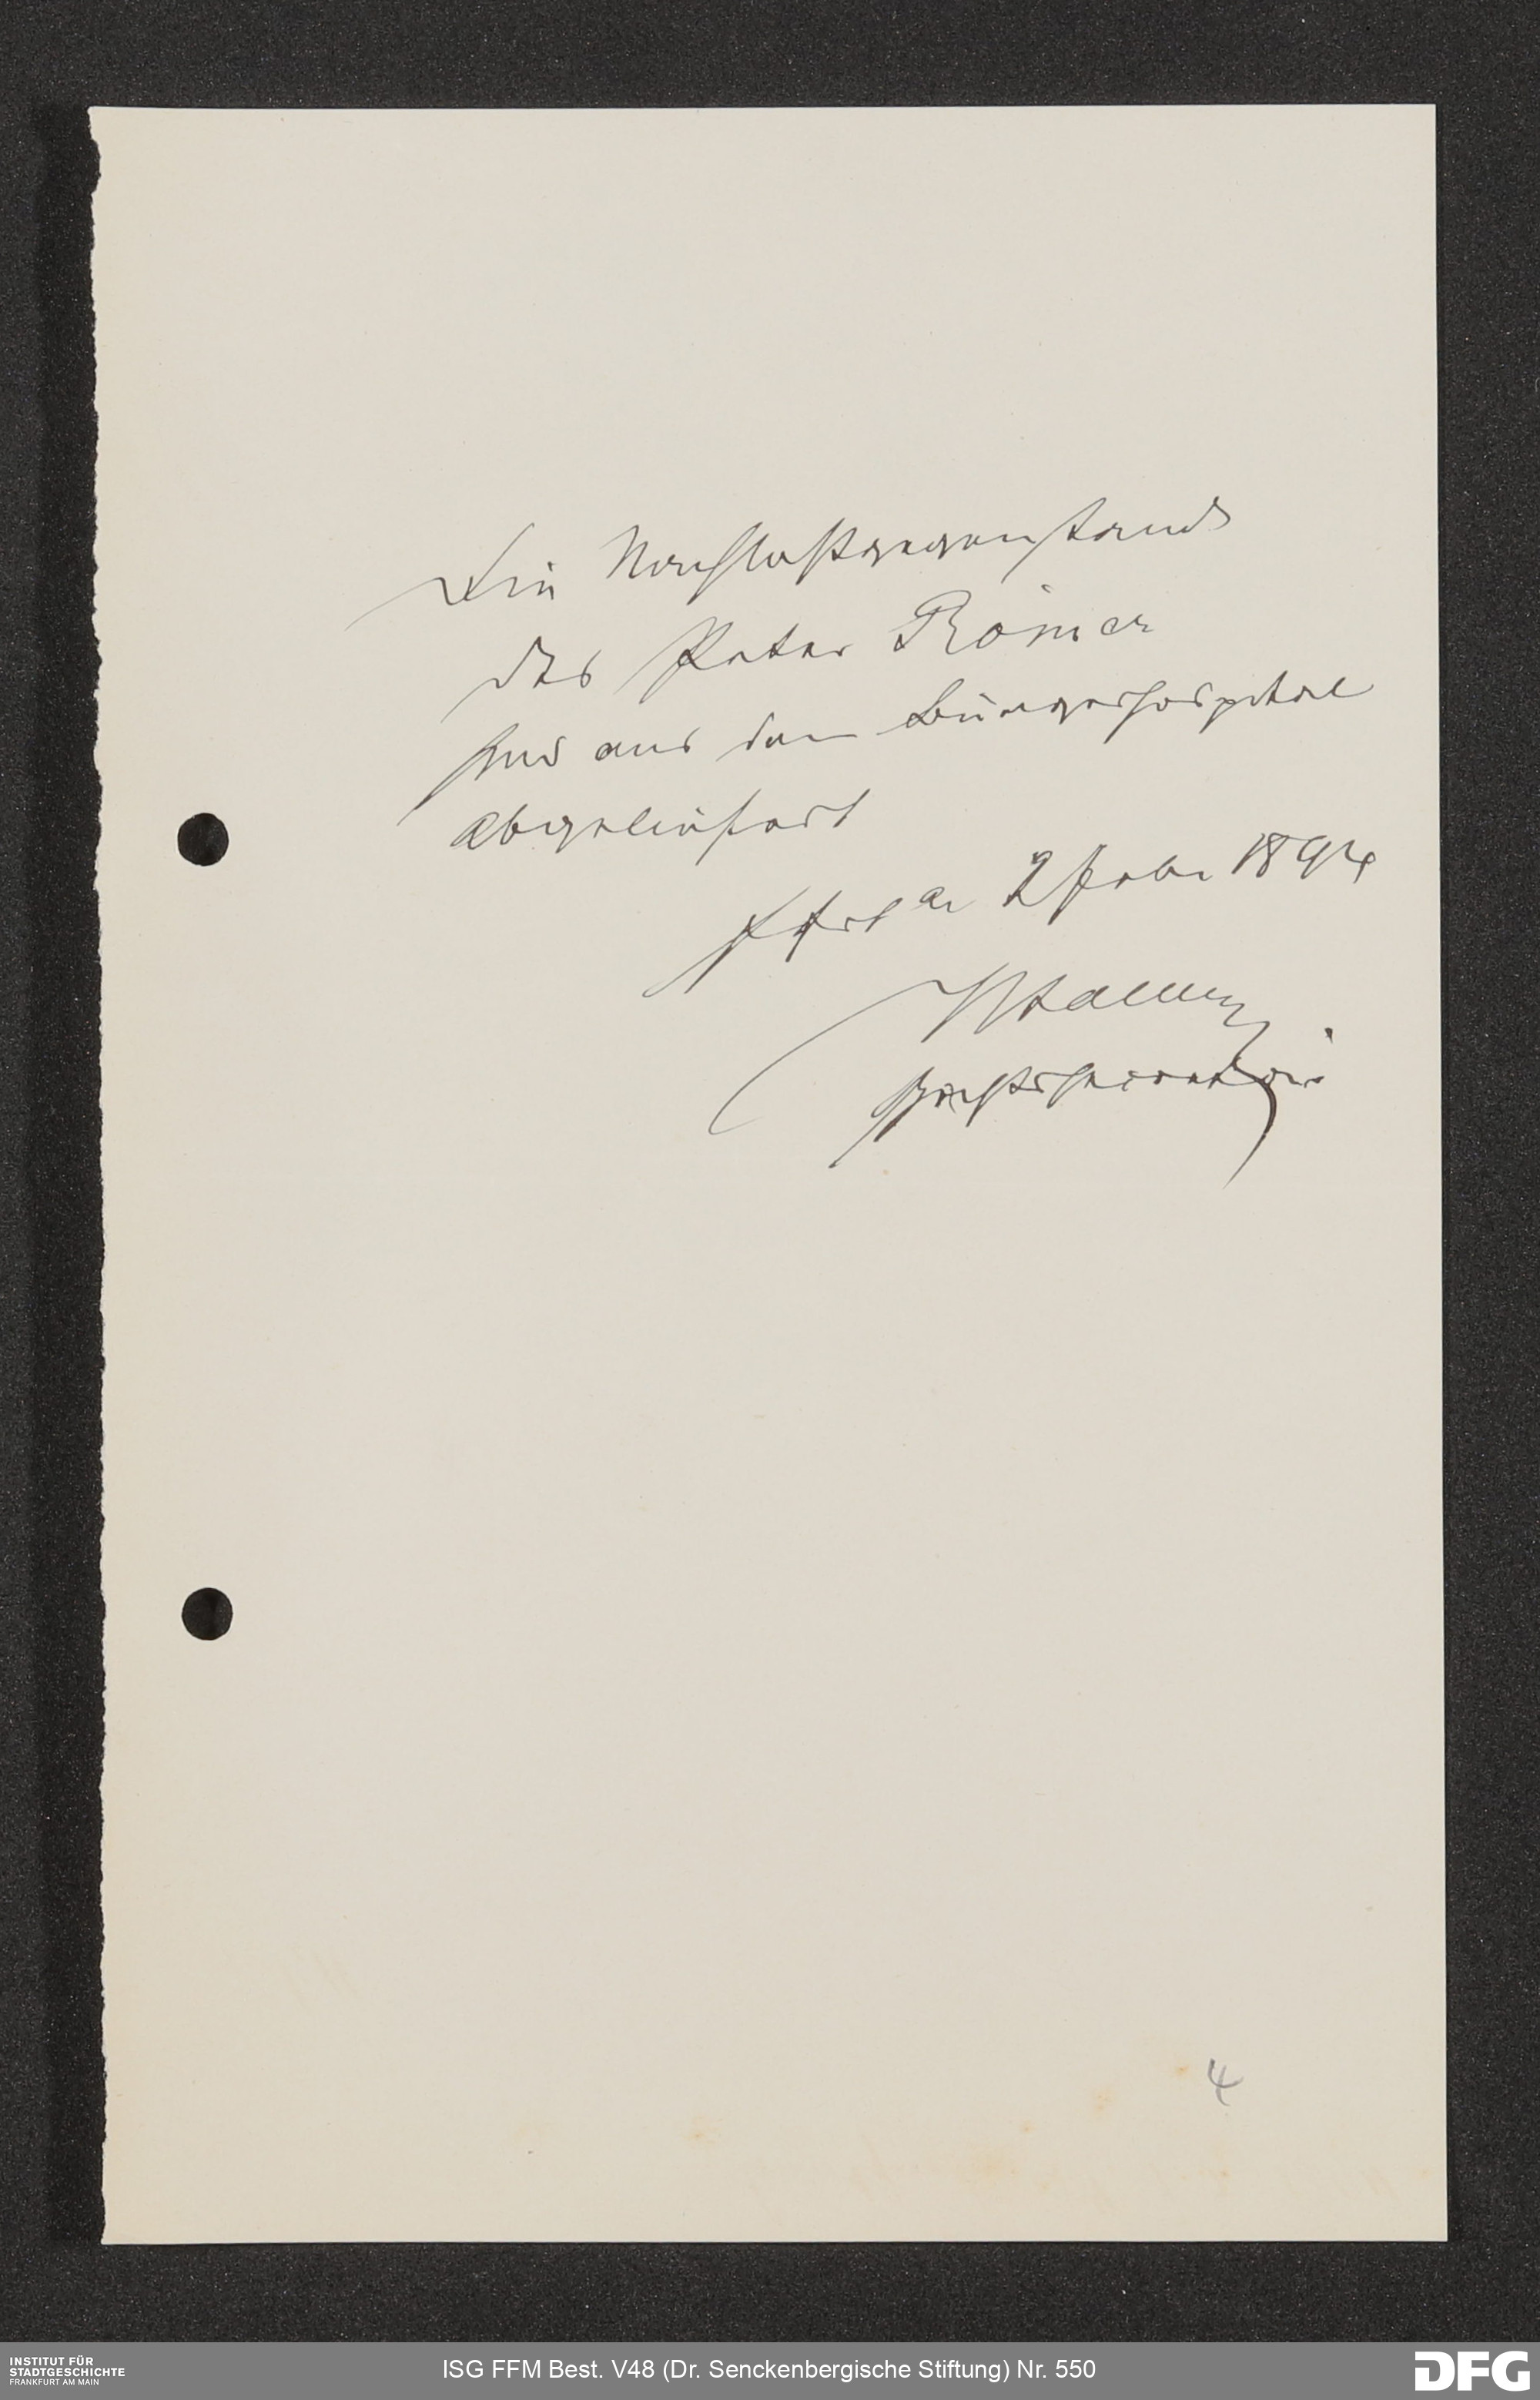 Die Nachlaßgegenstände
des Peter Römer
sind aus dem Bürgerhospital
abgeliefert
Ffrt a. 2 Febr 1894
Gerichtssecretair
4
INSTITUT FÜR
STADTGESCHICHTE
FRANKFURT AM MAIN
ISG FFM Best. V48 (Dr. Senckenbergische Stiftung) Nr. 550
DFG